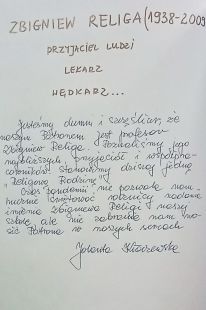 ZBIGNIEW RELIGA (1938-2009
PRZYJACIEL LUDZI
LEKARZ
WĘDKARZ...
Jesteśmy dumni i szczęśliwi, że
naszym Patronem jest profesor
Zbigniew Religa. Poznaliśmy jego
najbliższych, przyjaciół i współpra-
cowników. Stanowimy dzisiaj jedną
"Religową Rodzinę".
Czas pandemii nie pozwala nam
hucznie świętować rocznicy nadania
imienia Zbigniewa Religi naszej
szkole, ale nie zabrania nam no-
sić Patrona w naszych sercach
Jolanta